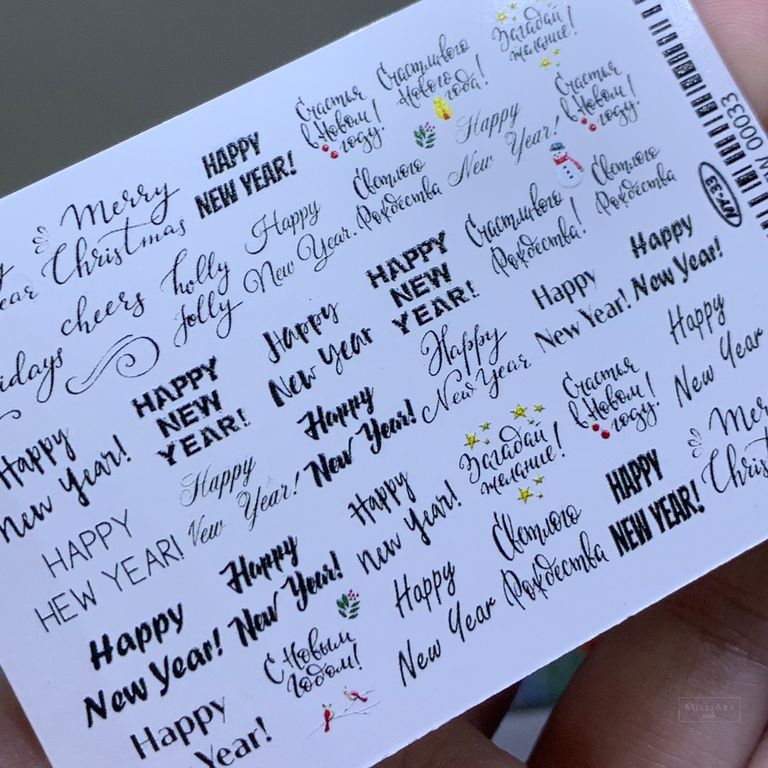 Загадай
желание!
Счастливого
Нового
года!
Счастья
в Новом
году!
HAPPY
NEW YEAR!
Merry
Christmas
Счастья
в Новом
году!
Happy
New Year!
Светлого
Рождества
Happy
New Year.
holly
jolly
cheers
Светлого
Рождества
Счастливого
Рождества!
HAPPY
NEW
YEAR!
Happy
New Year
HAPPY
NEW
YEAR!
Happy
New Year!
Happy
New Year!
Happy
New Year!
Happy
New Year
Happy
New Year!
Happy
Vew Year!
HAPPY
HEW YEAR!
Happy
New Year
Счастья
в Новом
году!
Загадай
желание!
Happy
New Year!
Happy
New Year!
Happy
New Year!
HAPPY
NEW YEAR!
Светлого
Рождества
Happy
New Year
С Новым
Годом!
Happy
Year!
00033
MILLIART